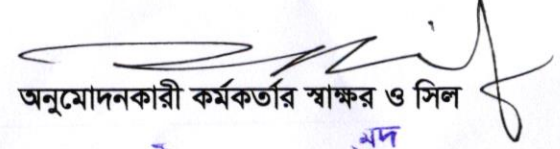 অনুমোদনকারী কর্মকর্তার স্বাক্ষর ও সিল